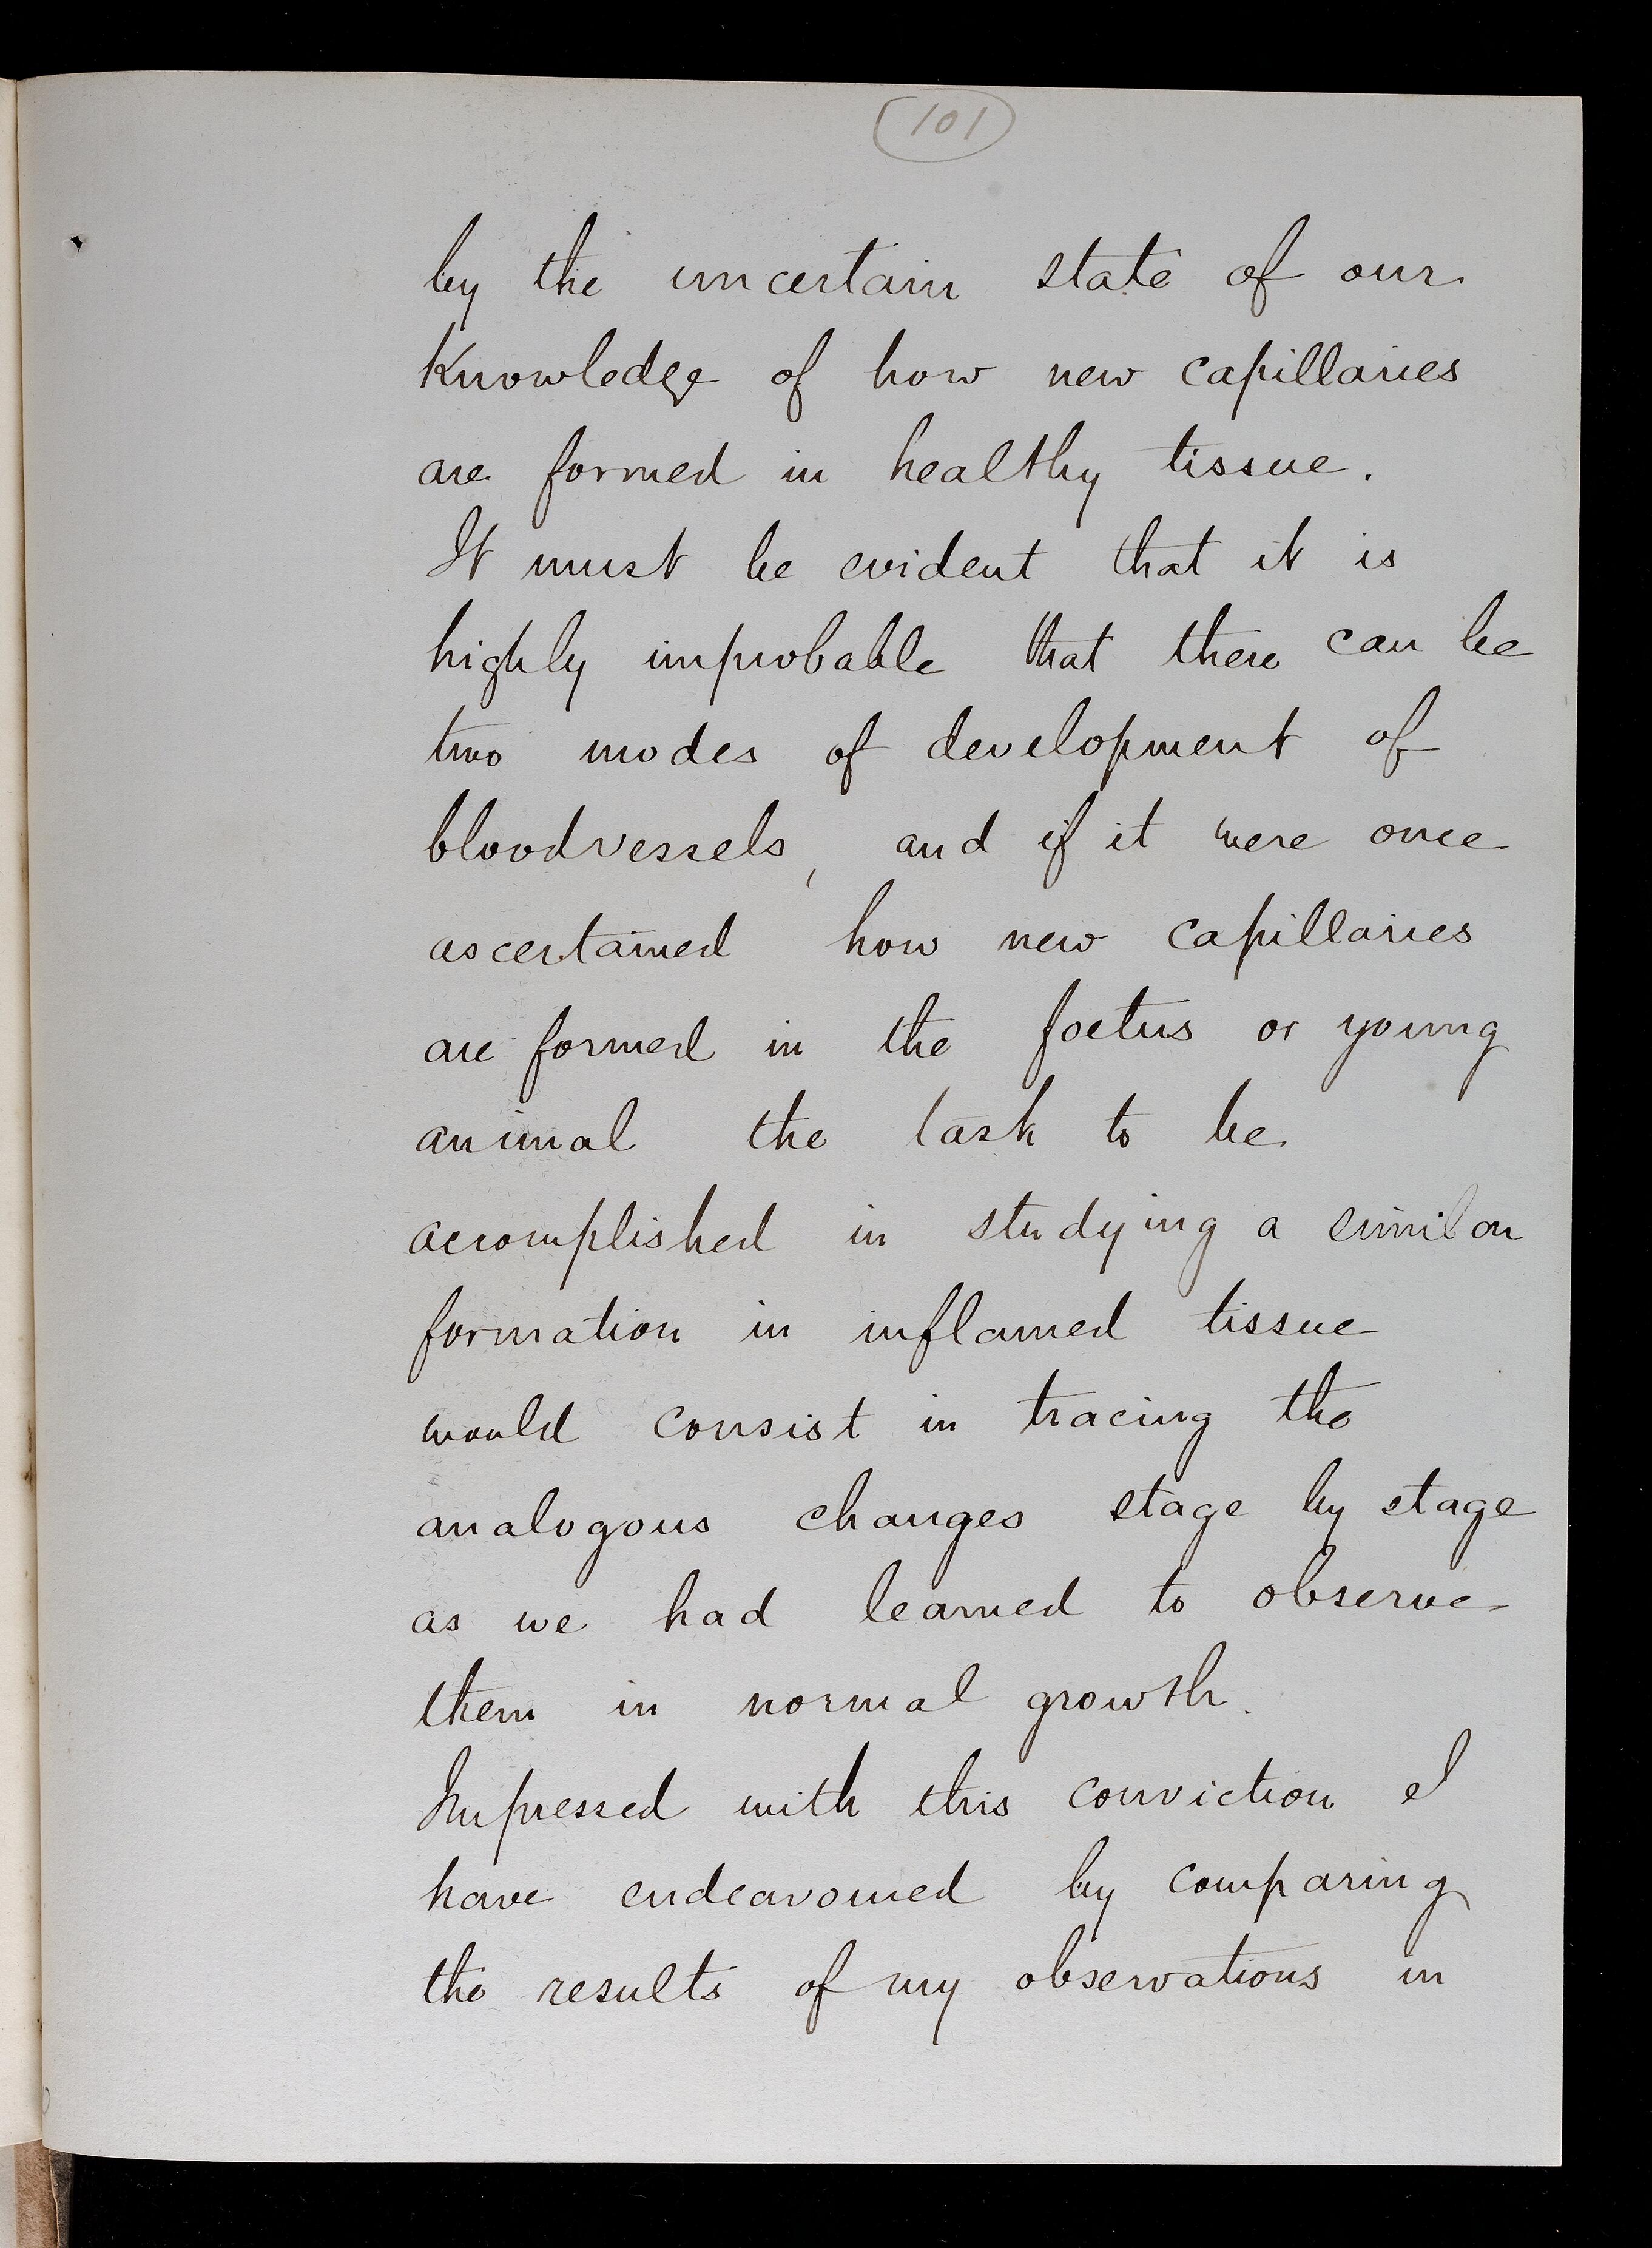 101
by the uncertain state of our
Knowledge of how new capillaries
are formed in healthy tissue.
It must be evident that it is
highly improbable that there can be
two modes of development of
bloodvessels, and if it were once
ascertained how new capillaries
are formed in the foetus or young
animal the task to be
accomplished in studying a similar
formation in inflamed tissue
would consist in tracing the
analogous changes stage by stage
as we had learned to observe
them in normal growth.
Impressed with this conviction I
have endeavoured by comparing
the results of my observations in